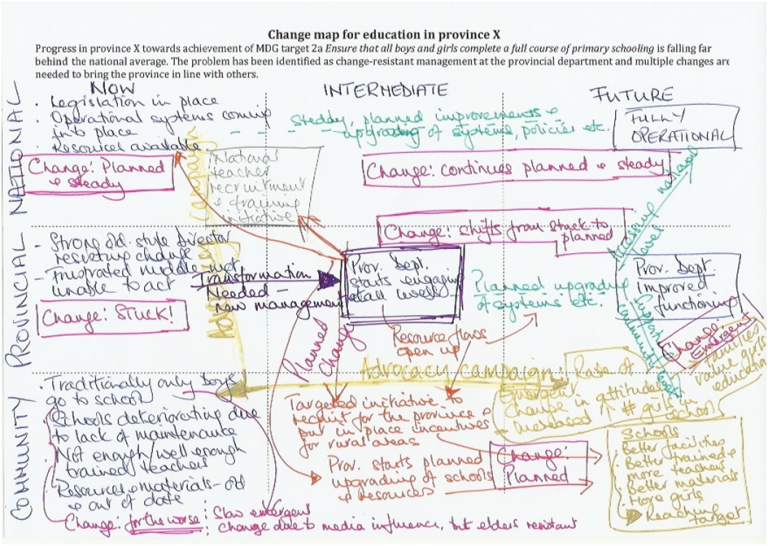 Change map for education in province X
Progress in province X towards achievement of MDG target 2a Ensure that all boys and girls complete a full course of primary schooling is falling far
behind the national average. The problem has been identified as change-resistant management at the provincial department and multiple changes are
needed to bring the province in line with others.
NOW
INTERMEDIATE
FUTURE
NATIONAL
· Legislation in place
· Operational systems coming
into place
· Resources available
Change: Planned
& steady
National
teacher
recruitment
& training
initiative
Steady, planned improvements &
upgrading of systems, policies etc.
FULLY
OPERATIONAL
Change: continues planned & steady
Change: shifts from stuck to
planned
PROVINCIAL
- Strong old-style director
resisting change
- Frustrated middle-mgt
unable to act
Change: STUCK!
Transformation
Needed -
new management
Prov. Dept.
starts engaging
at all levels
Planned upgrading
of systems etc.
Prov. Dept.
improved
functioning
Accessing national
level
Support
community level
Resource flows
open up
Planned
Change
Change:
Emergent
value girls
education
Advocacy campaign:
Advocacy
Campaign
Rate of
Emergent
change in attitudes
Increased ↑ # girls in
schools
COMMUNITY
· Traditionally only boys
go to school
· Schools deteriorating due
to lack of maintenance
· Not enough/well enough
trained teachers
· Resources & materials - old
& out of date
Change: for the worse: Slow emergent
change due to media influence, but elders resistant
Targeted initiative to
recruit for the province &
put in place incentives
for rural areas
Prov. starts planned
upgrading of schools
& resources
Change:
Planned
Schools
· Better facilities
· Better trained &
more teachers
· Better materials
· More girls
Reaching
target